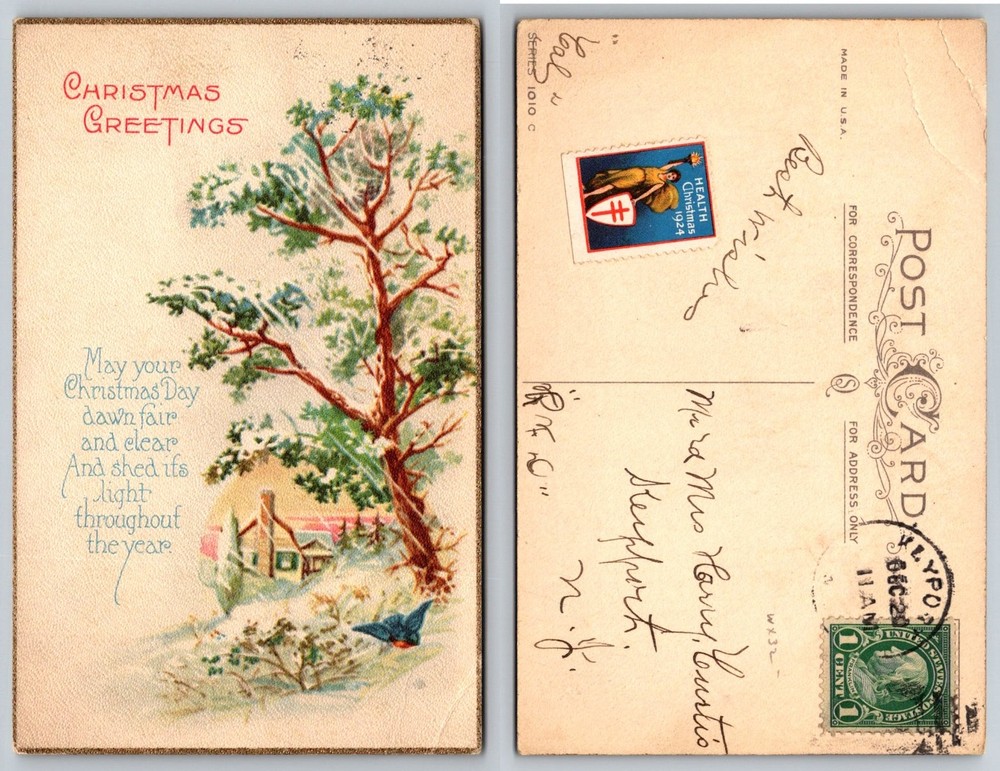 CHRISTMAS
GREETINGS
May your
Christmas Day
dawn fair
and clear
And shed its
light
throughout
the year.
SERIES 1010 C
MADE IN U.S.A.
POST CARD
FOR CORRESPONDENCE
FOR ADDRESS ONLY
HEALTH
Christmas
1924
Best Wishes
Mr and Mrs Harry Curtis
Keyport.
N. J.
"R F D"
WX32
DEC 2
11 AM
UNITED STATES POSTAGE
1 CENT 1